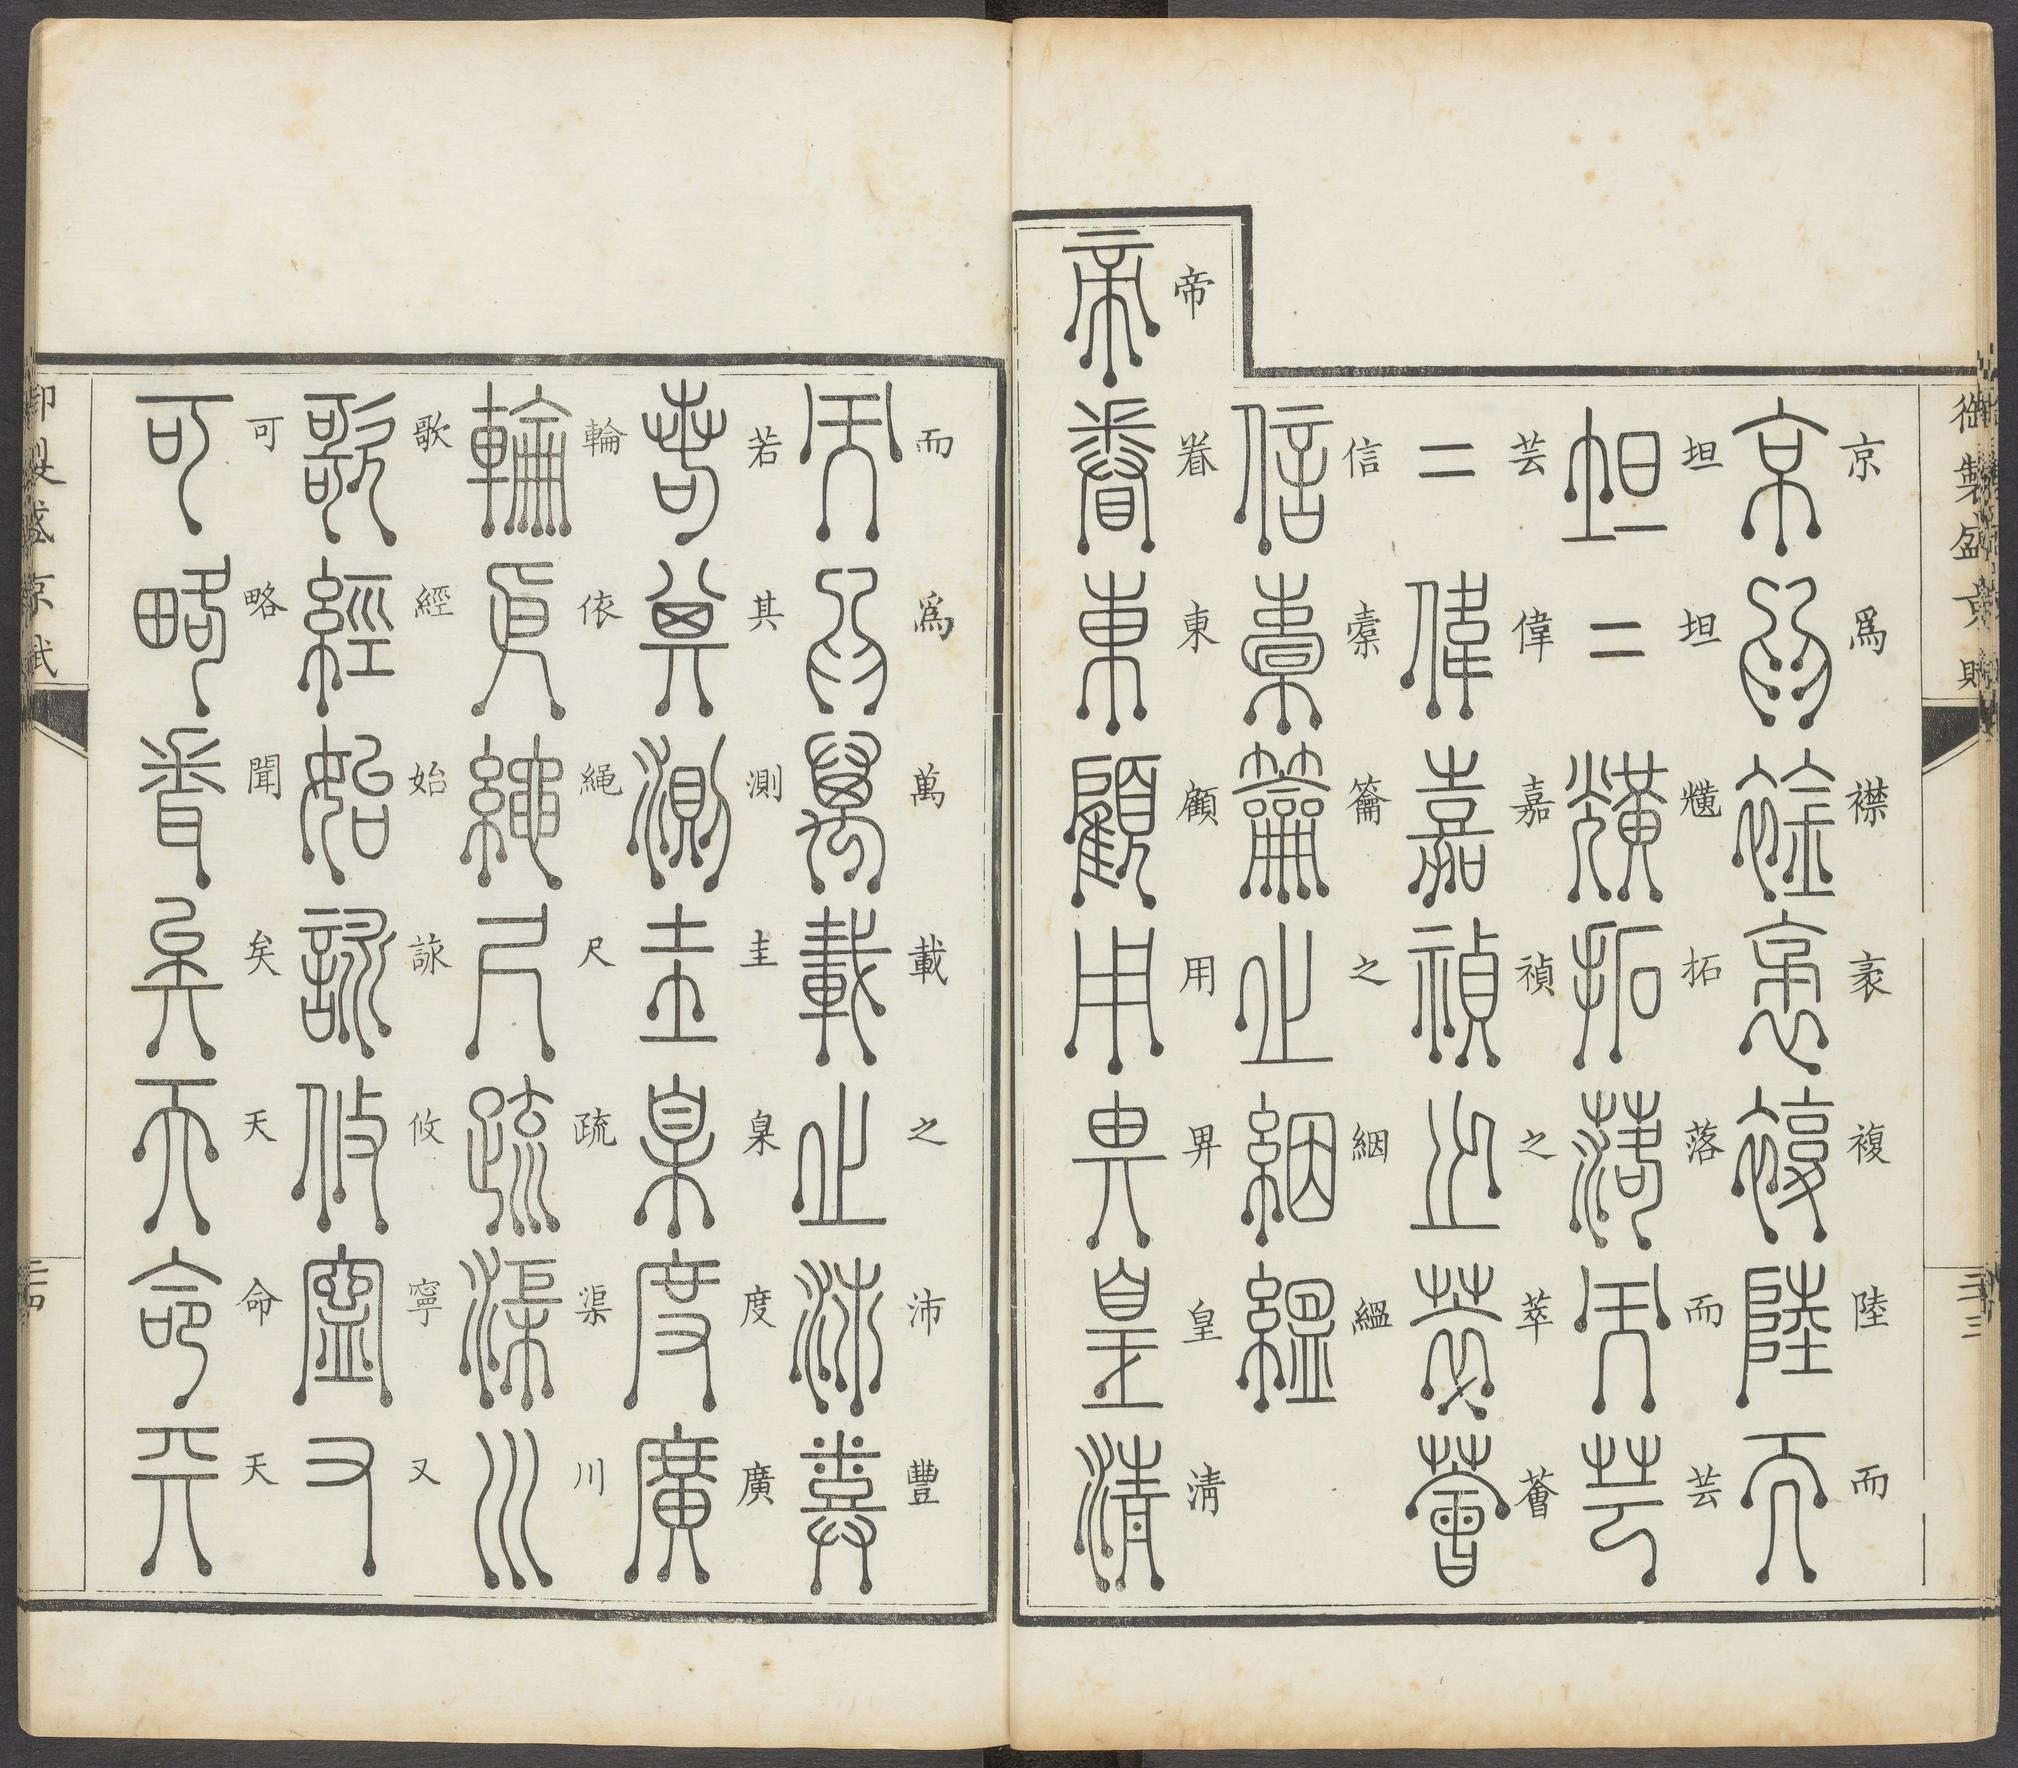 御製盛京賦
京爲襟袤複陸而
坦坦爌拓落而芸
芸偉嘉禎之萃薈
信橐籥之絪縕
帝眷東顧用畀皇清
而爲萬載之沛豐
若其測圭臬度廣
輪依繩尺疏渠川
歌經始詠攸寧又
可略聞矣天命天
御製盛京賦